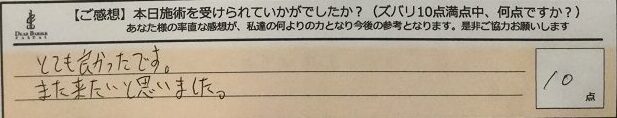 【ご感想】本日施術を受けられていかがでしたか？（ズバリ10点満点中、何点ですか？）
あなた様の率直な感想が、私達の何よりの力となり今後の参考となります。是非ご協力お願いします
DEAR BARBER
とても良かったです。
また来たいと思いました。
10
点